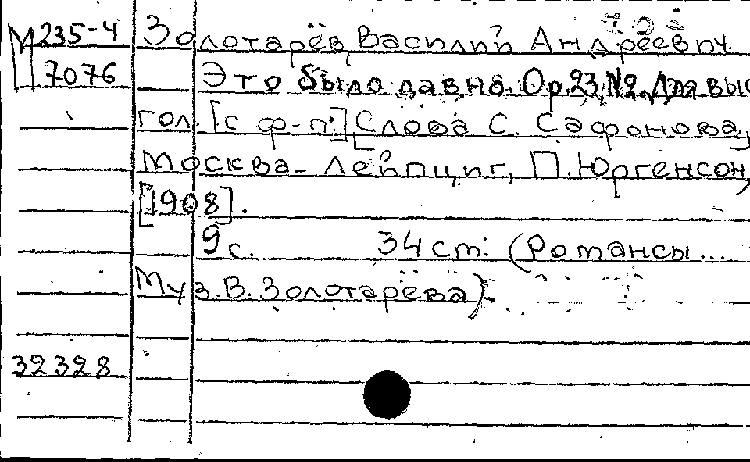 М 235-4 Золотарёв, Василий Андреевич.
7076 Это было давно. Ор. 23, №2. Для выс
гол. [с ф-п.] [Слова С. Сафонова,]
Москва - Лейпциг, П. Юргенсон,
[1908].
9 с. 34 см. (Романсы...
Муз. В. Золотарёва)
32328